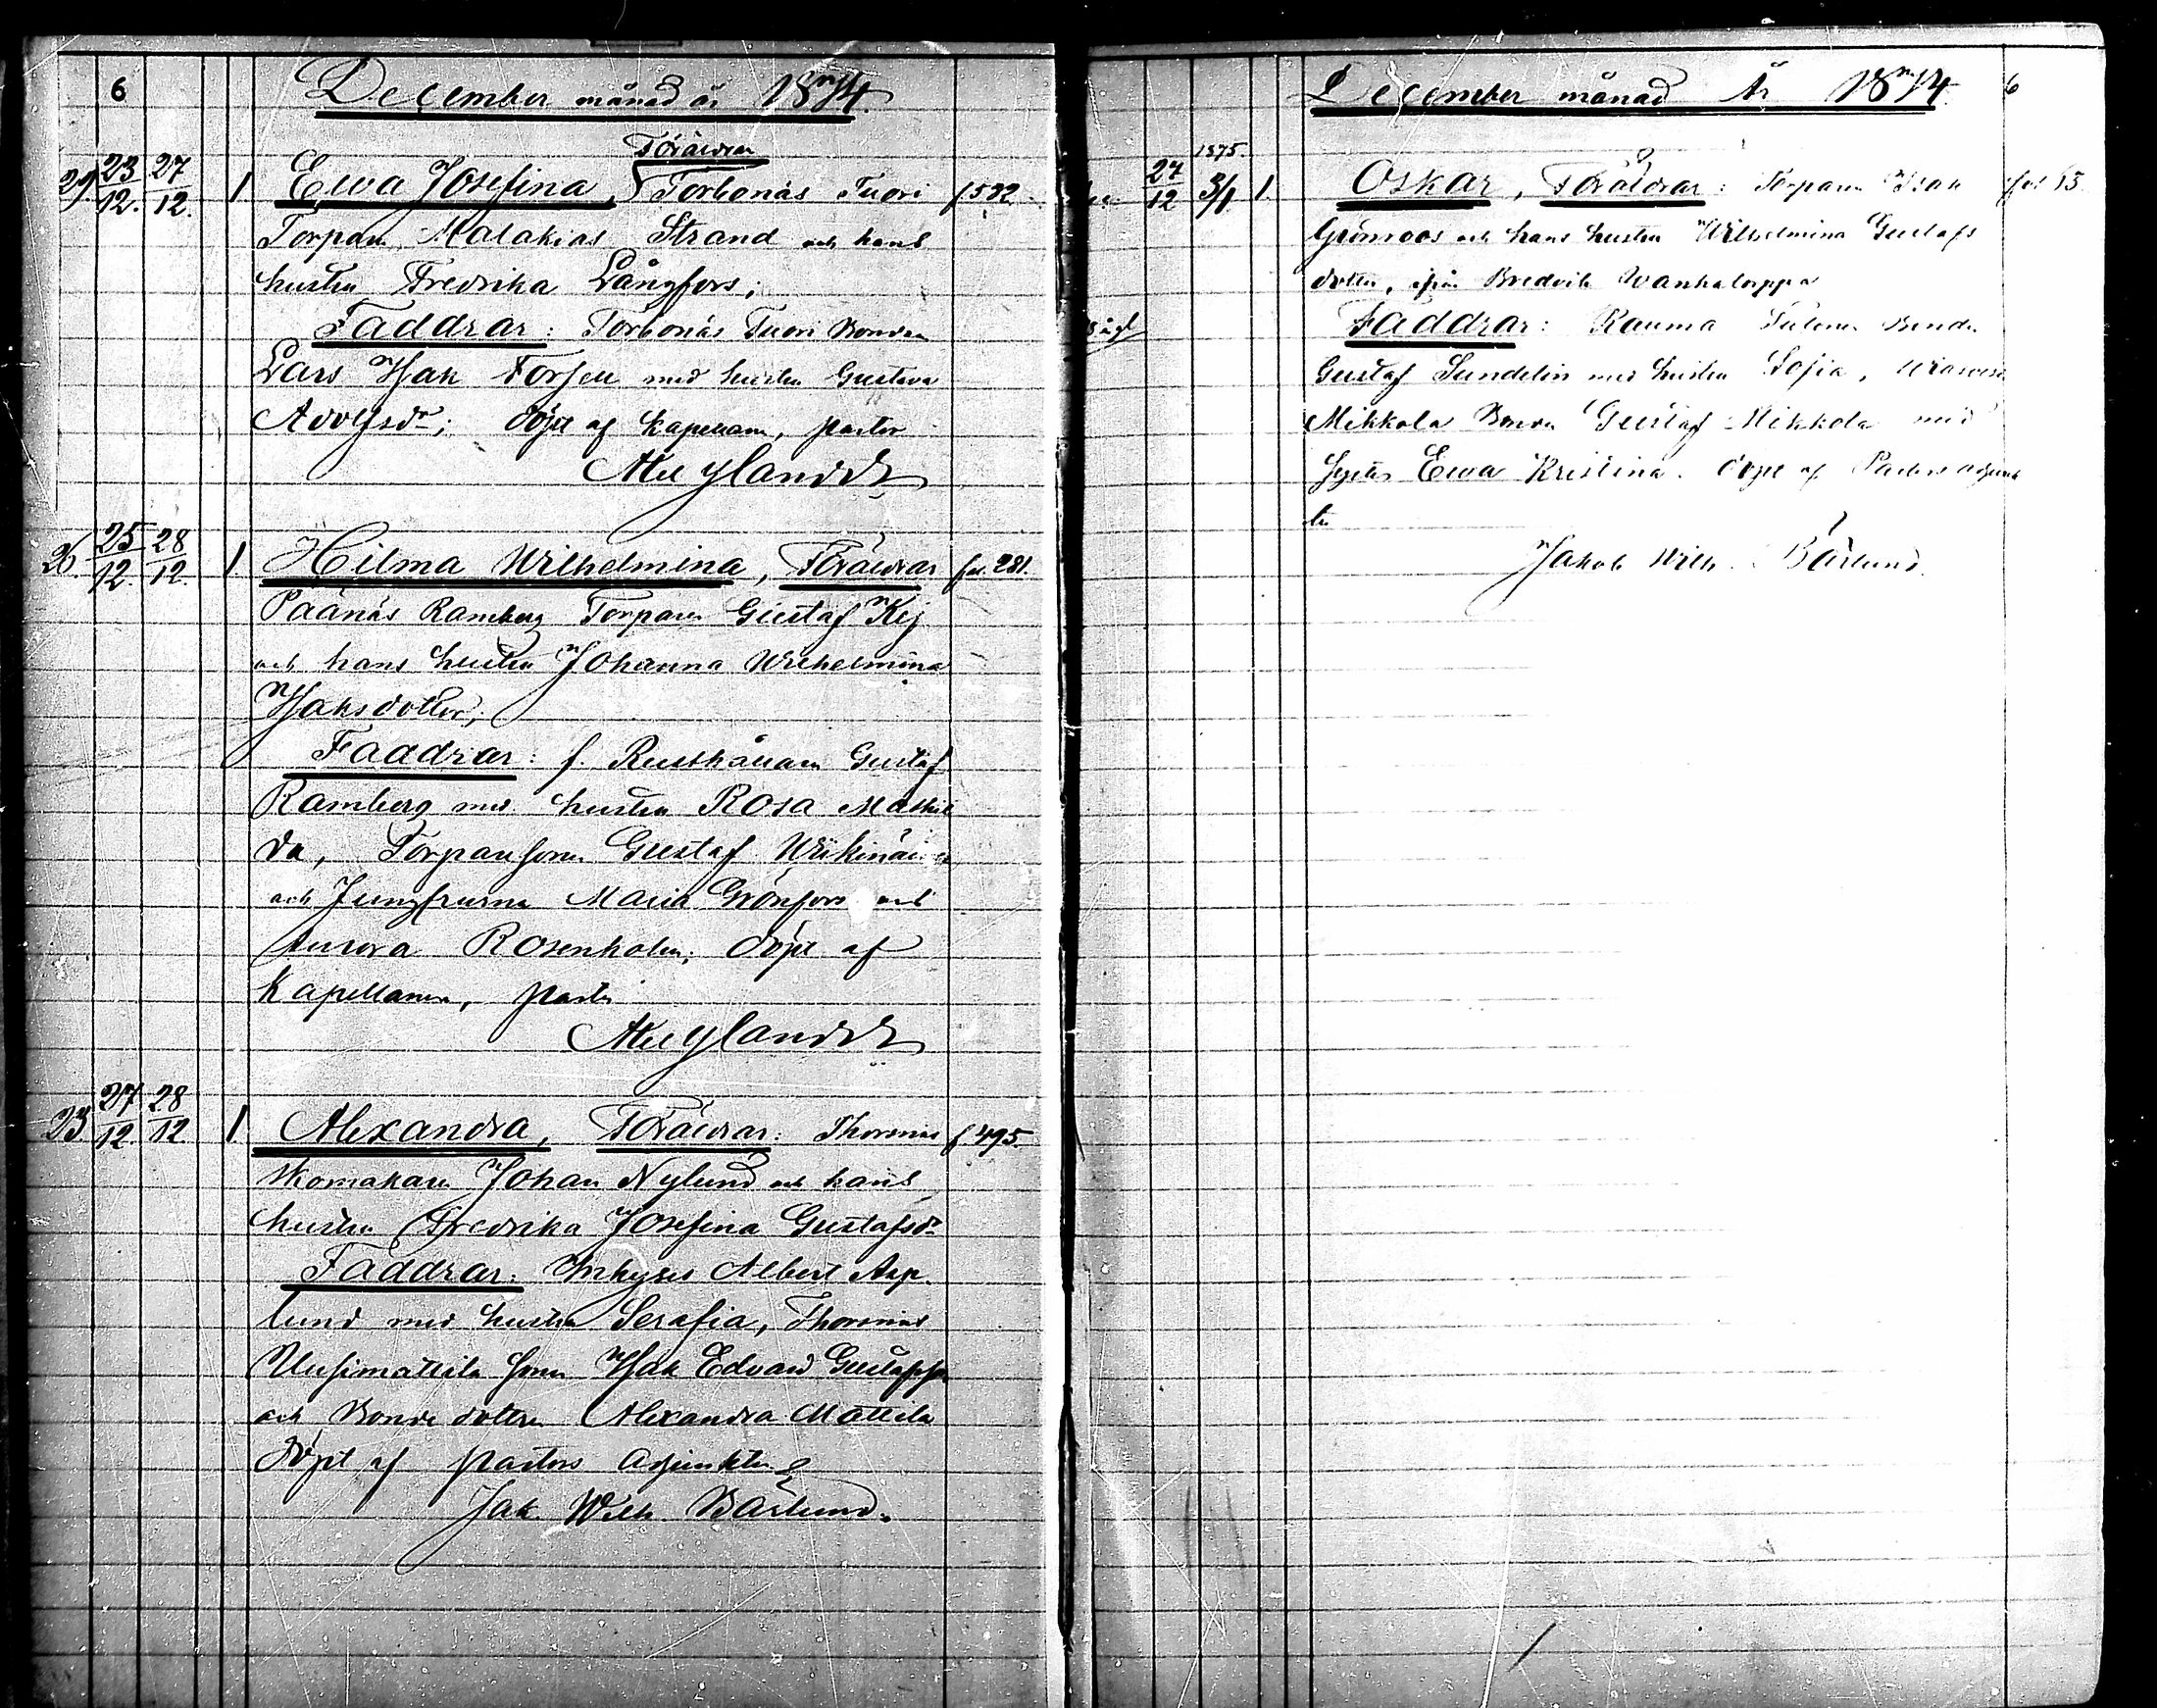 6
December månad år 1874.
Föräldrar
29 23/12. 27/12. 1 Ewa Josefina, Torbonäs Tuori f 532
Torparn Malakias Strand och hans
hustru Fredrika Långfors;
Faddrar: Torbonäs Tuori Bonden
Lars Isak Forsell med hustru Gustava
Adolfsdr; döpt af Kapellanen, pastor
Nylander
26. 25/12. 28/12. 1 Hilma Wilhelmina, Föräldrar fol. 281.
Päänäs Ramberg Torparn Gustaf Kej
och hans hustru Johanna Wilhelmina
Isaksdotter;
Faddrar: f. Rusthållarn Gustaf
Ramberg med hustru Rosa Mathil
da, Torparsonen Gustaf
och Jungfrurna Maria Grönfors och
Aurora Rosenholm; döpt af
Kapellanen, pastor
Nylander
23 27/12. 28/12 1 Alexandra, Föräldrar: Thorsnäs f 495.
Skomakarn Johan Nylund och hans
hustru Fredrika Josefina Gustafsdr
Faddrar: Inhyses Albert Asp-
lund med hustru Serafia, Thorsnäs
Uusimattila sonen Isak Edvard Gustafsson
och Bonde dottern Alexandra Mattila
döpt af pastors Adjunkten
Jak. Wilh. Bärlund.
December månad År 1874. 6
1875.
24/12 3/1 1. Oskar, Föräldrar: Torparn Isak fol 13.
Grönroos och hans hustru Wilhelmina Gustafs
dotter, ifrån Bredvik Wanhatorppa
Faddrar: Rauma Bonden
Gustaf Sundelin med hustru Sofia,
Mikkola Bonden Gustaf Mikkola med
Syster Ewa Kristina. döpt af Pastors adjunk
ten
Jakob Wilh. Bärlund.